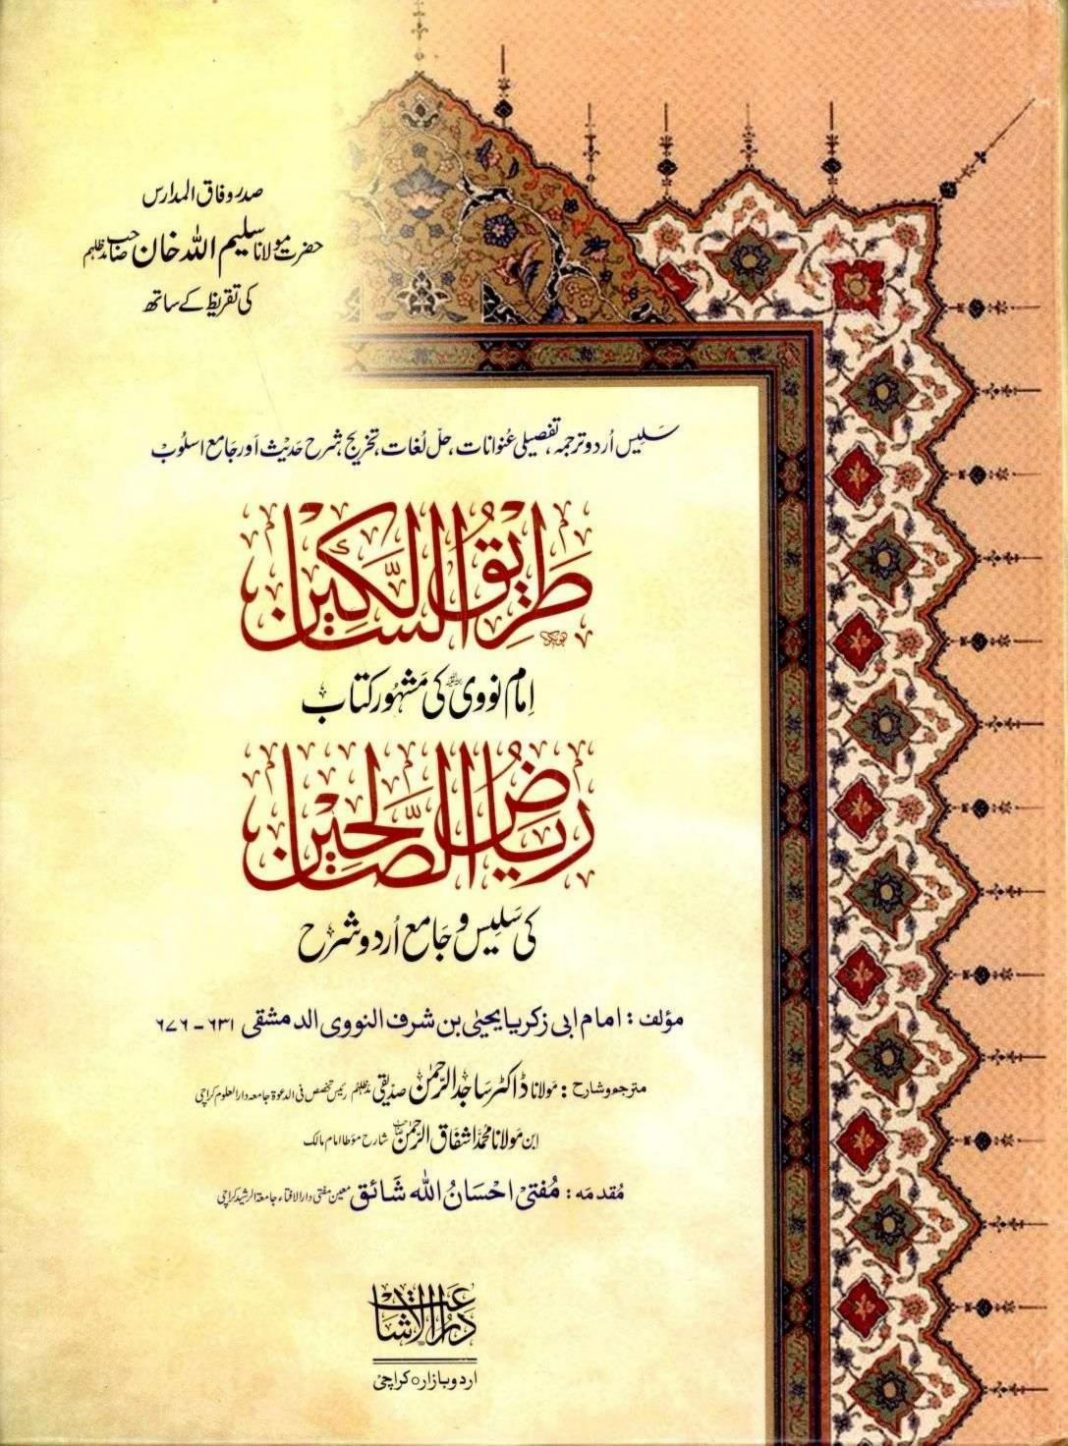 صدر وفاق المدارس
حضرت مولانا سلیم اللہ خان صاحب مدظلہم
کی تقریظ کے ساتھ
سَلِیس اُردو ترجمہ، تفصیلی عُنوانات، حلّ لُغات، تخریج، شرح حَدِیث اَور جَامع اسلُوبْ
طَرِیقُ السَّالِکِین
اِمام نووی کی مَشہُور کتاب
رِیَاضُ الصَّالِحِین
کی سَلِیس و جَامع اُردو شرح
مؤلف : امام ابی زکریا یحییٰ بن شرف النووی الدمشقی ٦٣١ - ٦٧٦
مترجم و شارح : مَولانا ڈاکٹر سَاجِدُ الرَّحمٰن صدّیقی مدظلہم رئیس تخصص فی الدعوۃ جامعہ دارالعلوم کراچی
ابن مَولانا مُحمَّد اشفَاق الرَّحمٰن شارح مؤطا امام مالک
مُقدمَہ : مُفتِی احْسَانُ اللہ شَائق معین مفتی دارالافتاء جامعۃ الرشید کراچی
دَارُ الْاِشَاعَت
اردو بازار ٥ کراچی